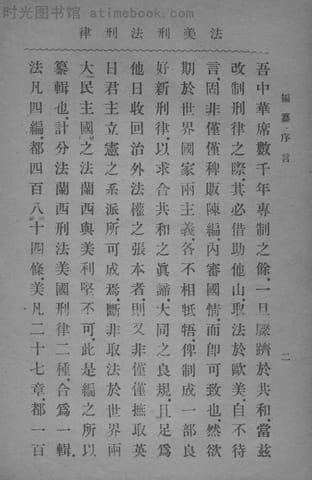 时光图书馆 atimebook.com
律刑法刑美法
編纂序言
二
吾中華席數千年專制之餘一旦驟躋於共和當茲
改制刑律之際其必借助他山取法於歐美自不待
言固非僅僅稗販陳編內審國情而卽可致也然欲
期於世界國家兩主義各不相牴牾俾制成一部良
好新刑律以求合共和之眞諦大同之良規且足爲
他日收回治外法權之張本者則又非僅僅撫取英
日君主立憲之系派所可成焉斷非取法於世界兩
大民主國之法蘭西與美利堅不可此是編之所以
纂輯也計分法蘭西刑法美國刑律二種合爲一輯
法凡四編都四百八十四條美凡二十七章都一百